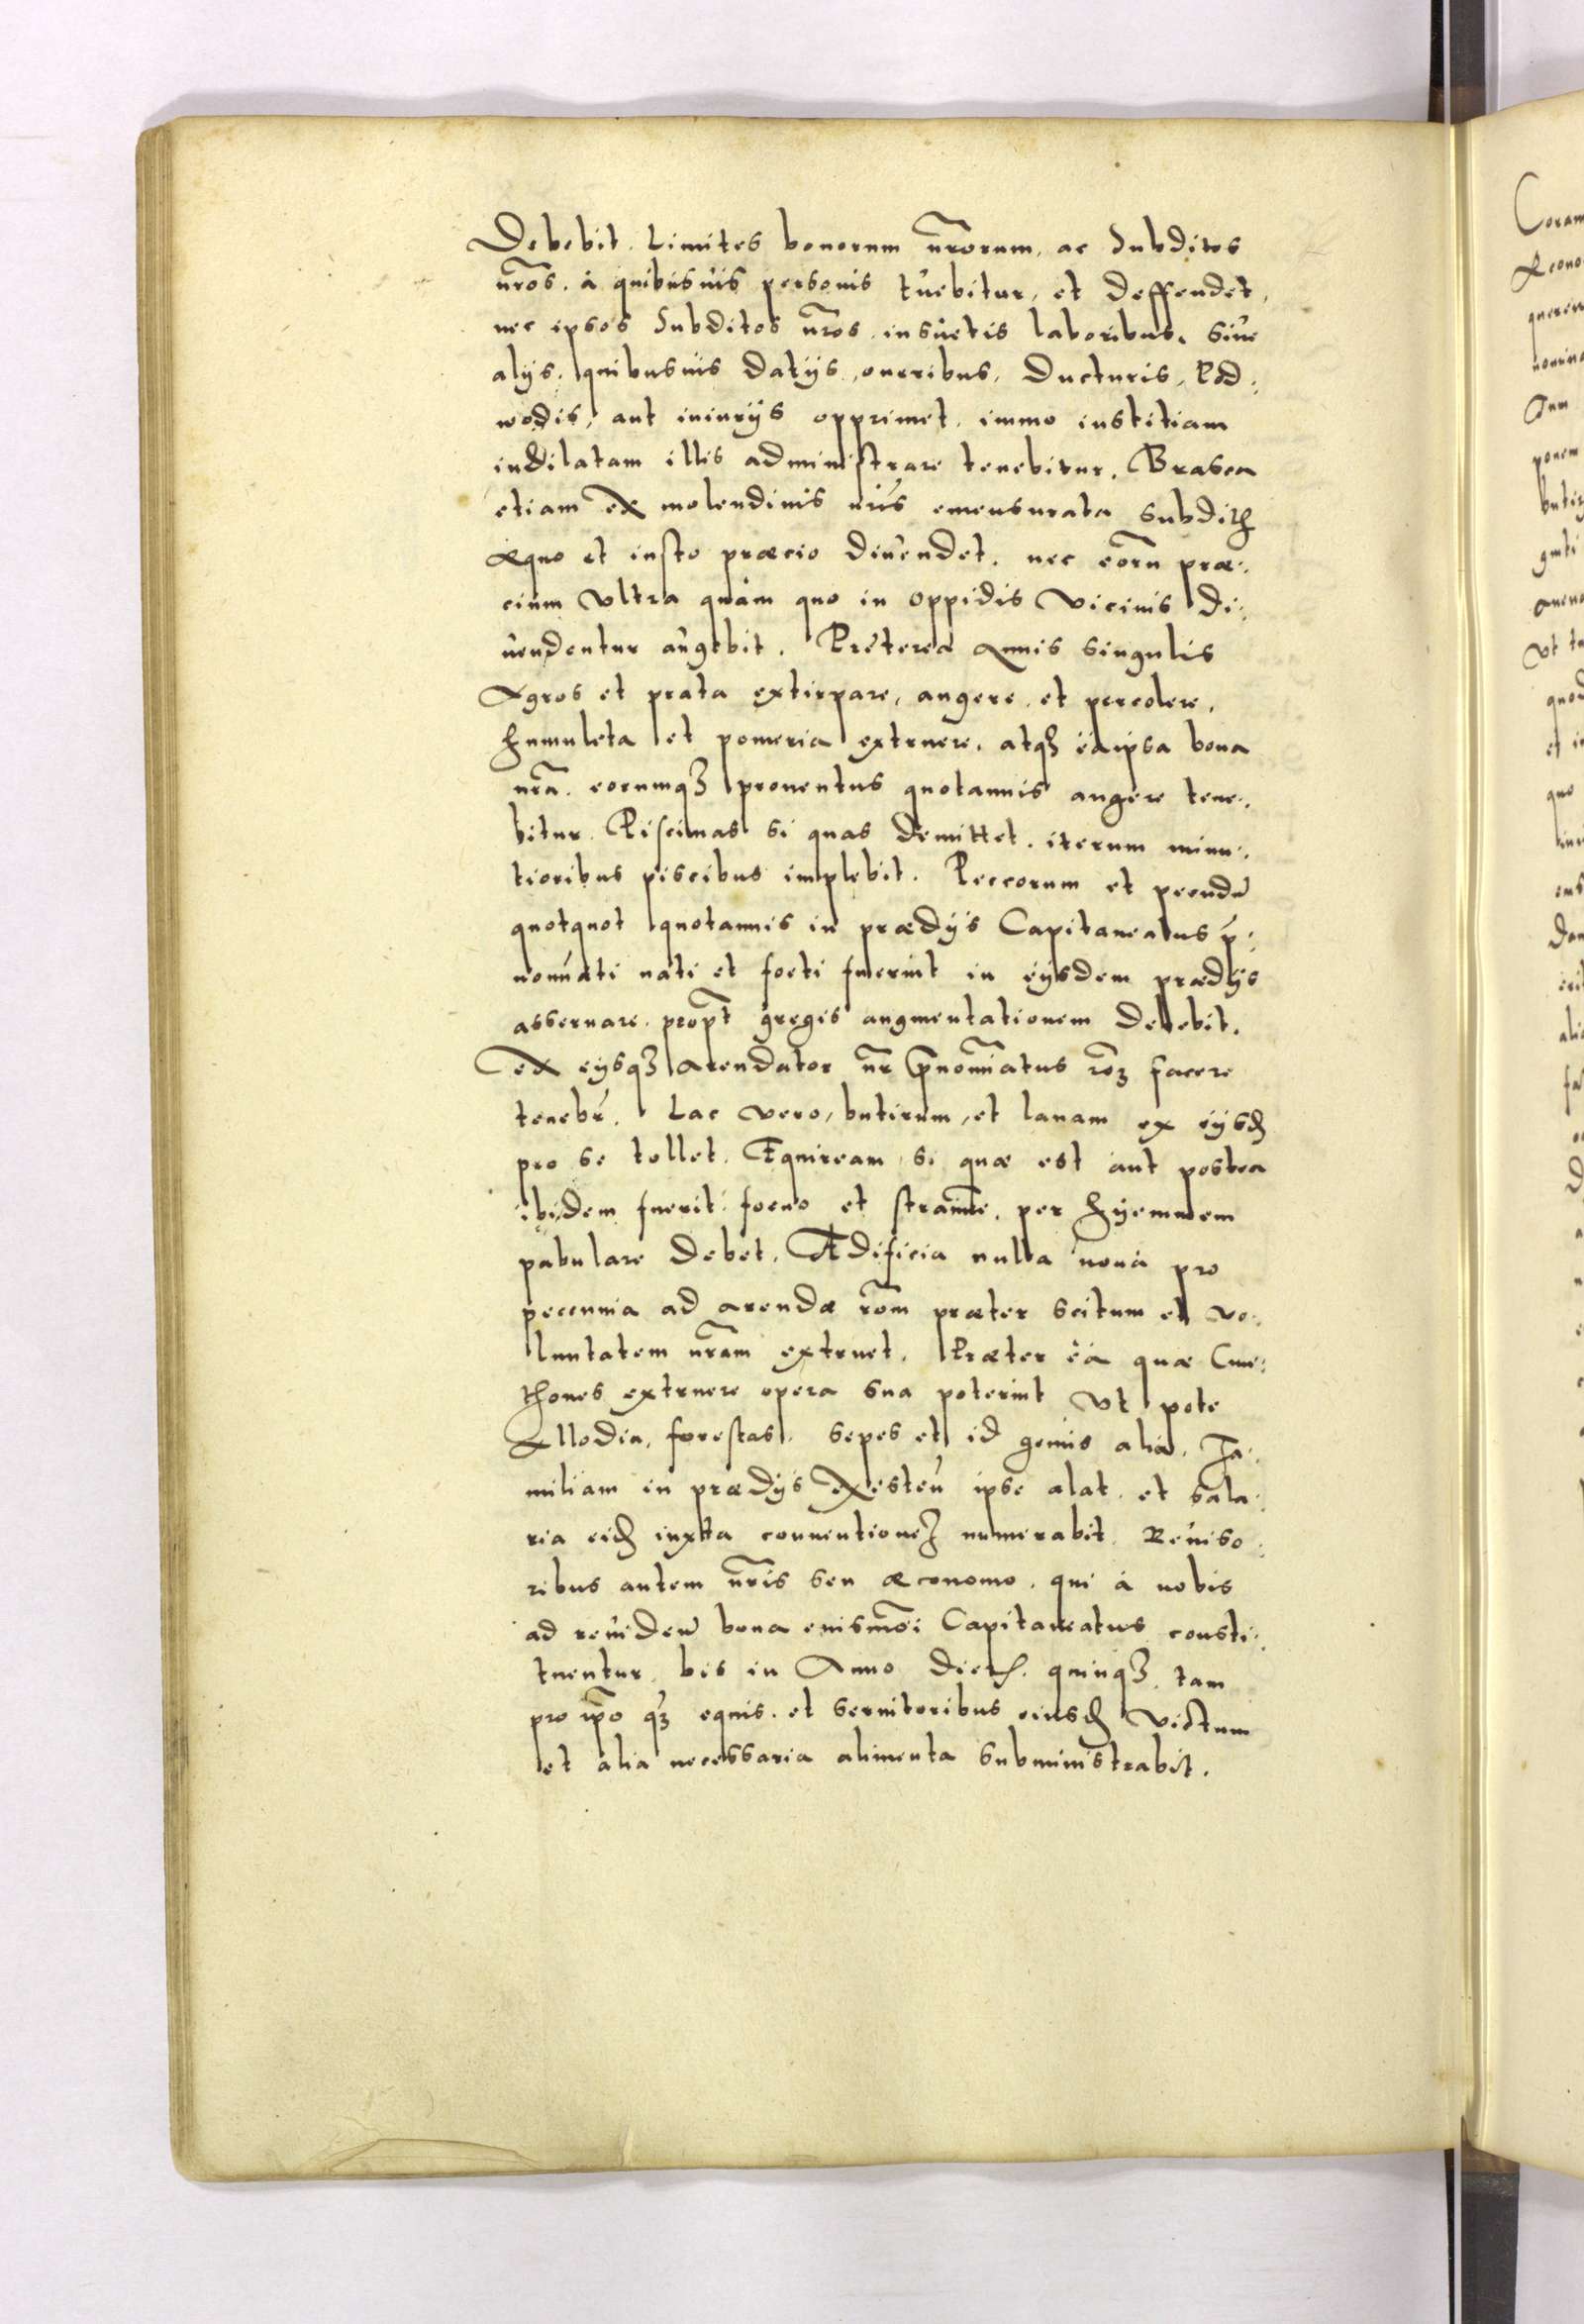 Debebit. Limites bonorum nrorum, ac Subditos
nros. à quibusuis personis tuebitur, et deffendet,
nec ipsos Subditos nros. insuetis laboribus, siue
alijs. quibusuis datijs, oneribus, ducturis, Pod:
wodis, aut iniurijs opprimet. immo iustitiam
indilatam illis administrare tenebitur. Brasea
etiam ex molendinis nris emensurata subditis
æquo et iusto præcio diuendet. nec eoru præ:
cium vltra quàm quo in oppidis vicinis di:
uendentur augebit. Preterea annis singulis
Agros et prata extirpare, augere, et percolere,
humuleta et pomeria extruere, atqз ea ipsa bona
nra. eorumqз prouentus quotannis augere tene:
bitur. Piscinas si quas demittet. iterum minu:
tioribus piscibus implebit. Peccorum et pecudu
quotquot quotannis in prædijs Capitaneatus p:
nominati nati et foeti fuerint in eijsdem prædijs
asseruare. propt gregis augmentationem debebit.
Ex eijsqз Arendator nr pnominatus roз facere
tenebr. Lac vero, butirum, et lanam ex eijsd
pro se tollet. Equiream si quæ est aut postea
ibidem fuerit. foeno et stramine. per hyemem
pabulare debet. Ædificia nulla noua pro
peccunia ad arendæ rom præter scitum et vo:
luntatem nram extruet. Præter ea quæ Cme:
thones extruere opera sua poterint vt pote
Allodia, forestas, sepes et id genus alia. Fa:
miliam in prædijs existen ipse alat. et sala:
ria eid iuxta conuentioneз numerabit. Reuiso:
ribus autem nris seu æconomo. qui à nobis
ad reuiden bona euismoi Capitaneatus consti:
tuentur. bis in Anno diet. quinqз. tam
pro ipo qз equis. et seruitoribus eiusd victum
et alia necessaria alimenta subministrabit.